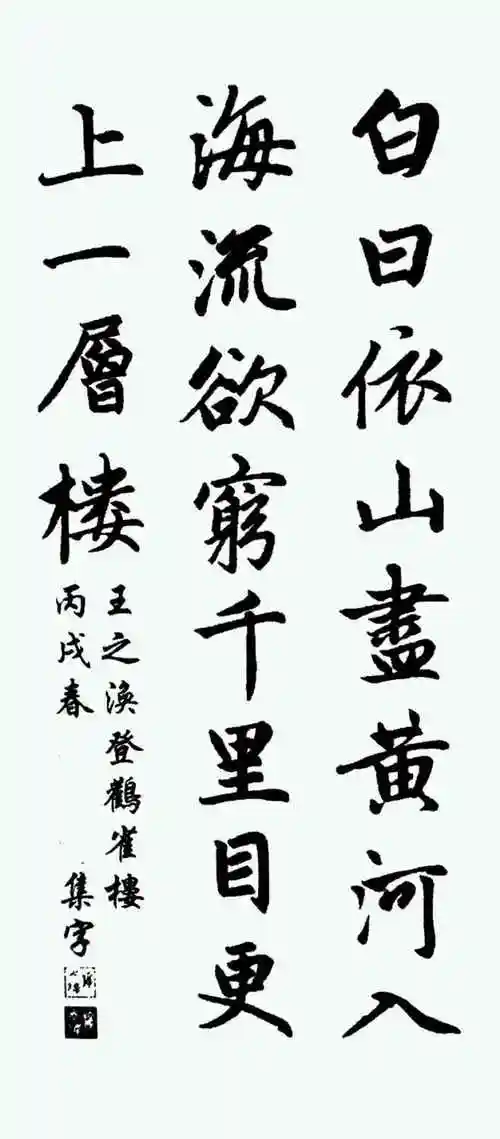 白日依山盡黄河入
海流欲窮千里目更
上一層樓
王之渙登鸛雀樓
丙戌春
集字